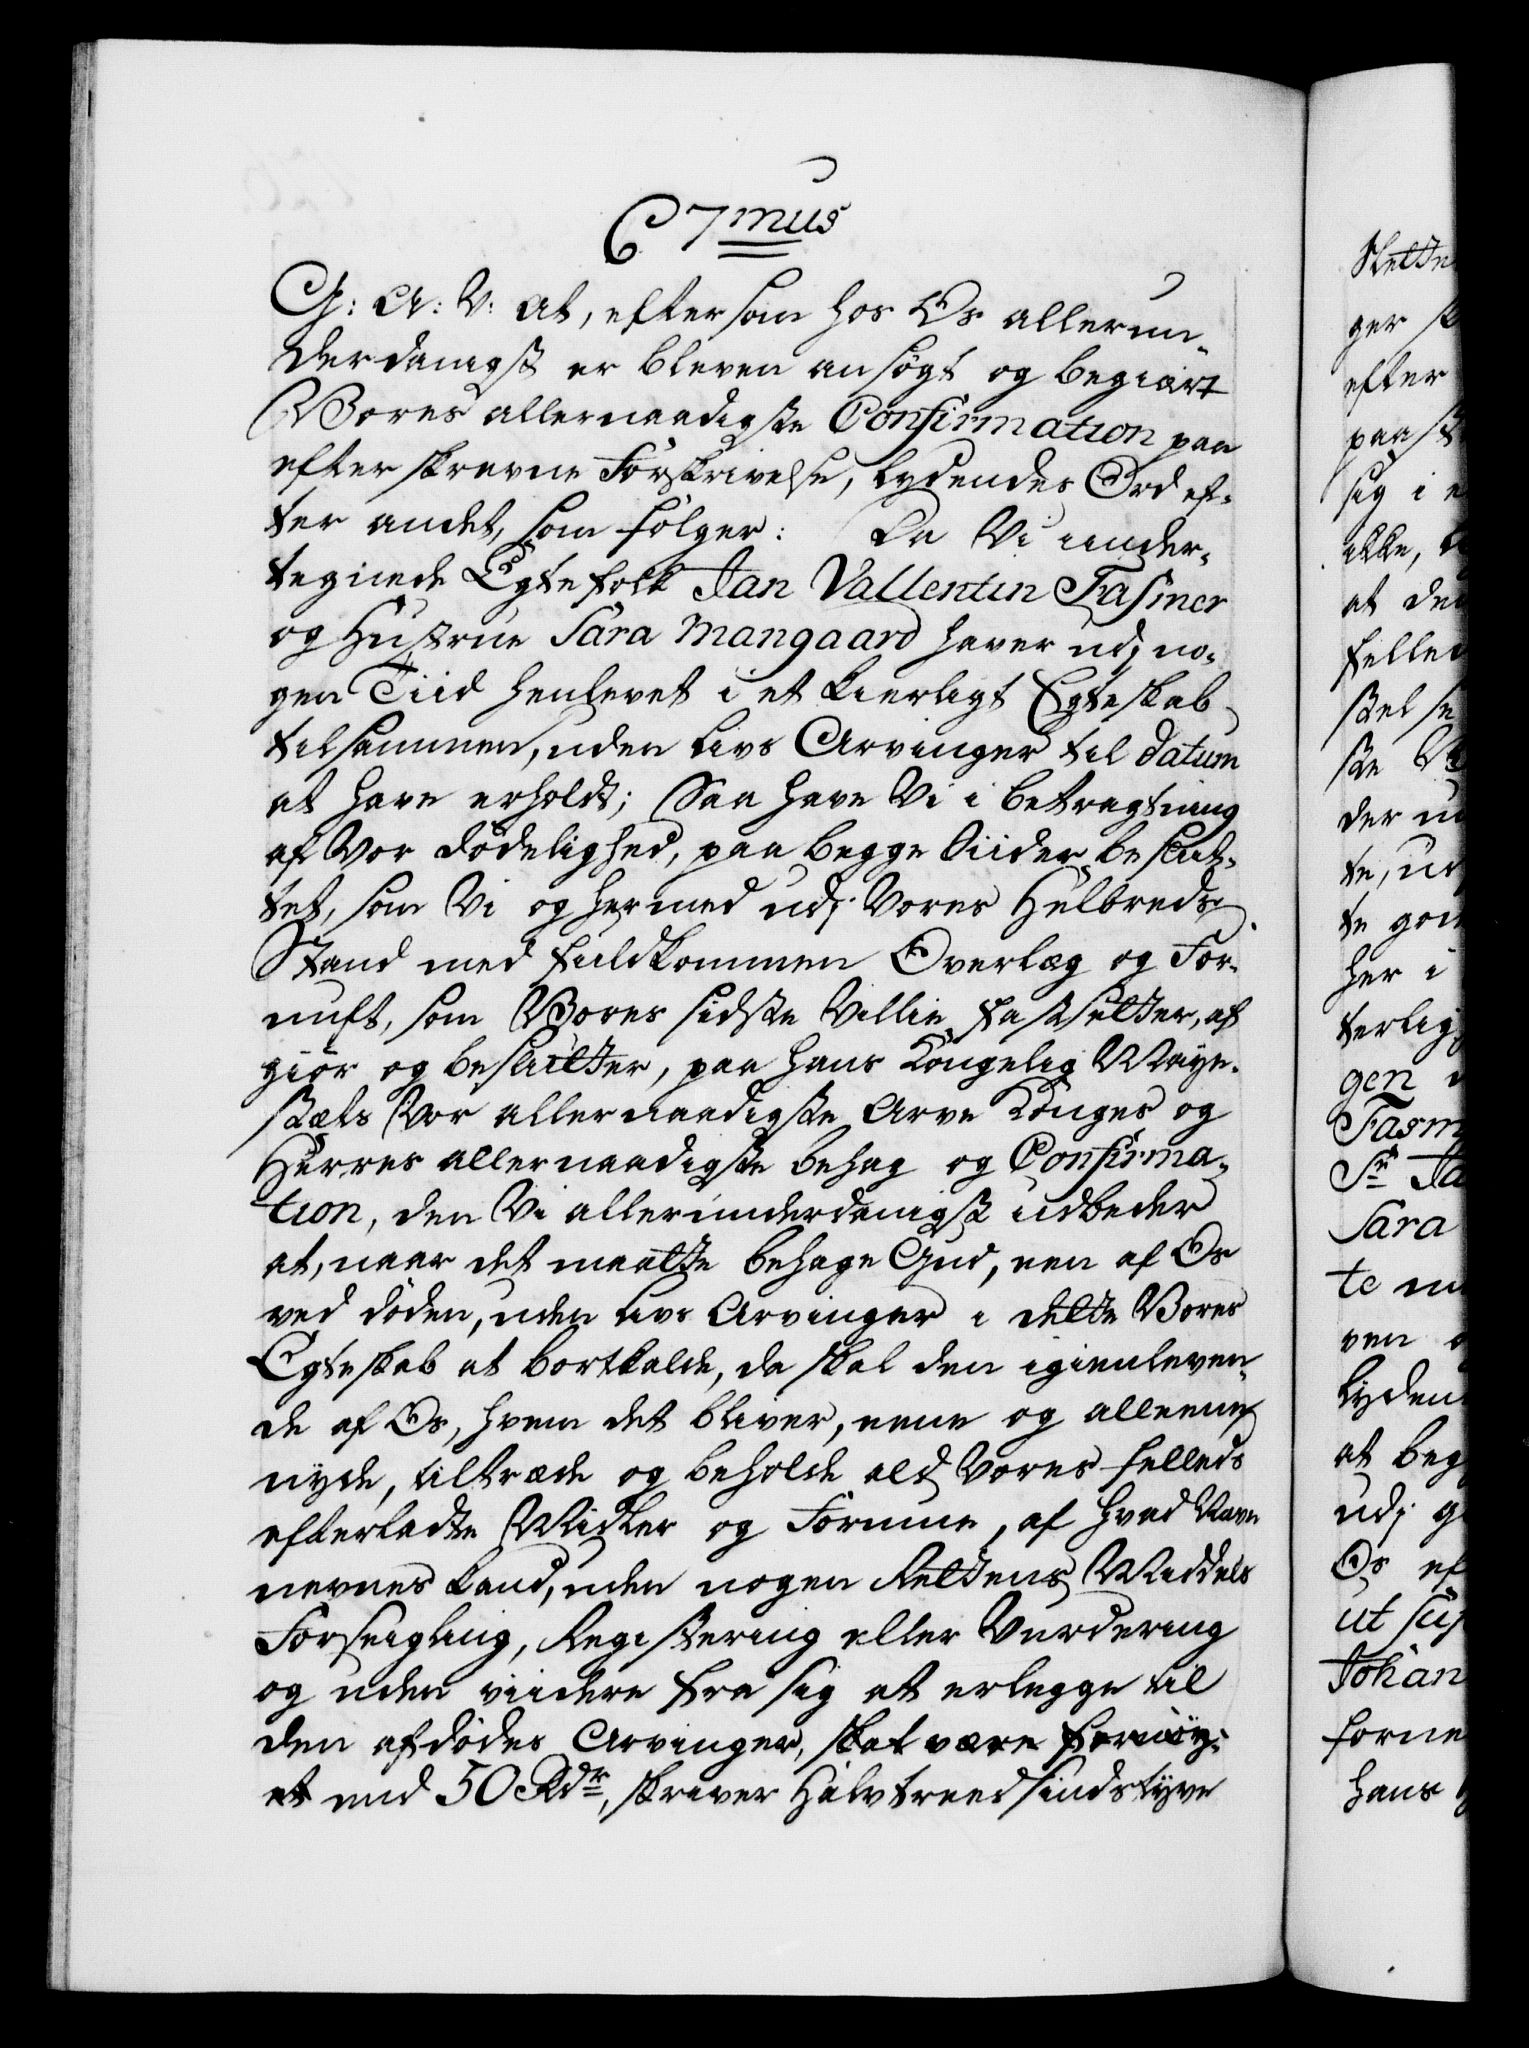 C 7mus
G: A: V: at, eftersom hos Os allerun-
derdanigst er bleven ansøgt og begiært
Vores allernaadigste Confirmation paa
efterskrevne Forskrivelse, lydendes Ord ef-
ter andet, som følger: Da Vi under-
tegnede Egtefolk Jan Vallentin Fasmer
og Hustrue Sara Mangaard haver udj no-
gen Tiid henlevet i et kierligt Egteskab
tilsammen, uden Livs Arvinger til datum
at have erholdt; Saa have Vi i betragtning
af Vor dødelighed, paa begge Siider beslut-
tet, som Vi og hermed udj Vores Helbreds
Stand med fuldkommen Overlæg og For-
nuft, som Vores sidste Villie fastsetter, af
giør og beslutter, paa Hans Kongelig Maye-
stæts Vor allernaadigste Arve Konges og
Herres allernaadigste behag og Confirma-
tion, den Vi allerunderdanigst udbeder
at, naar det maatte behage Gud, een af Os
ved døden, uden Livs Arvinger i dette Vores
Egteskab at bortkalde, da skal den igienleven-
de af Os, hvem det bliver, eene og alleene
nyde, tiltræde og beholde ald Vores felleds
efterladte Midler og Formue, af hvad Navn
nevnes kand, uden nogen Rettens Middels
Forseigling, Registering eller Vurdering
og uden viidere fra sig at erlegge til
den afdødes Arvinger, skal være fornøy-
et med 50 Rdr, skriver Halvtreedsindstyve
ger
efter
sig i
at
ter
her i
gen
Sr Ja
Sara
ven
at beg
udj
Os ef
Johan
forne
hans